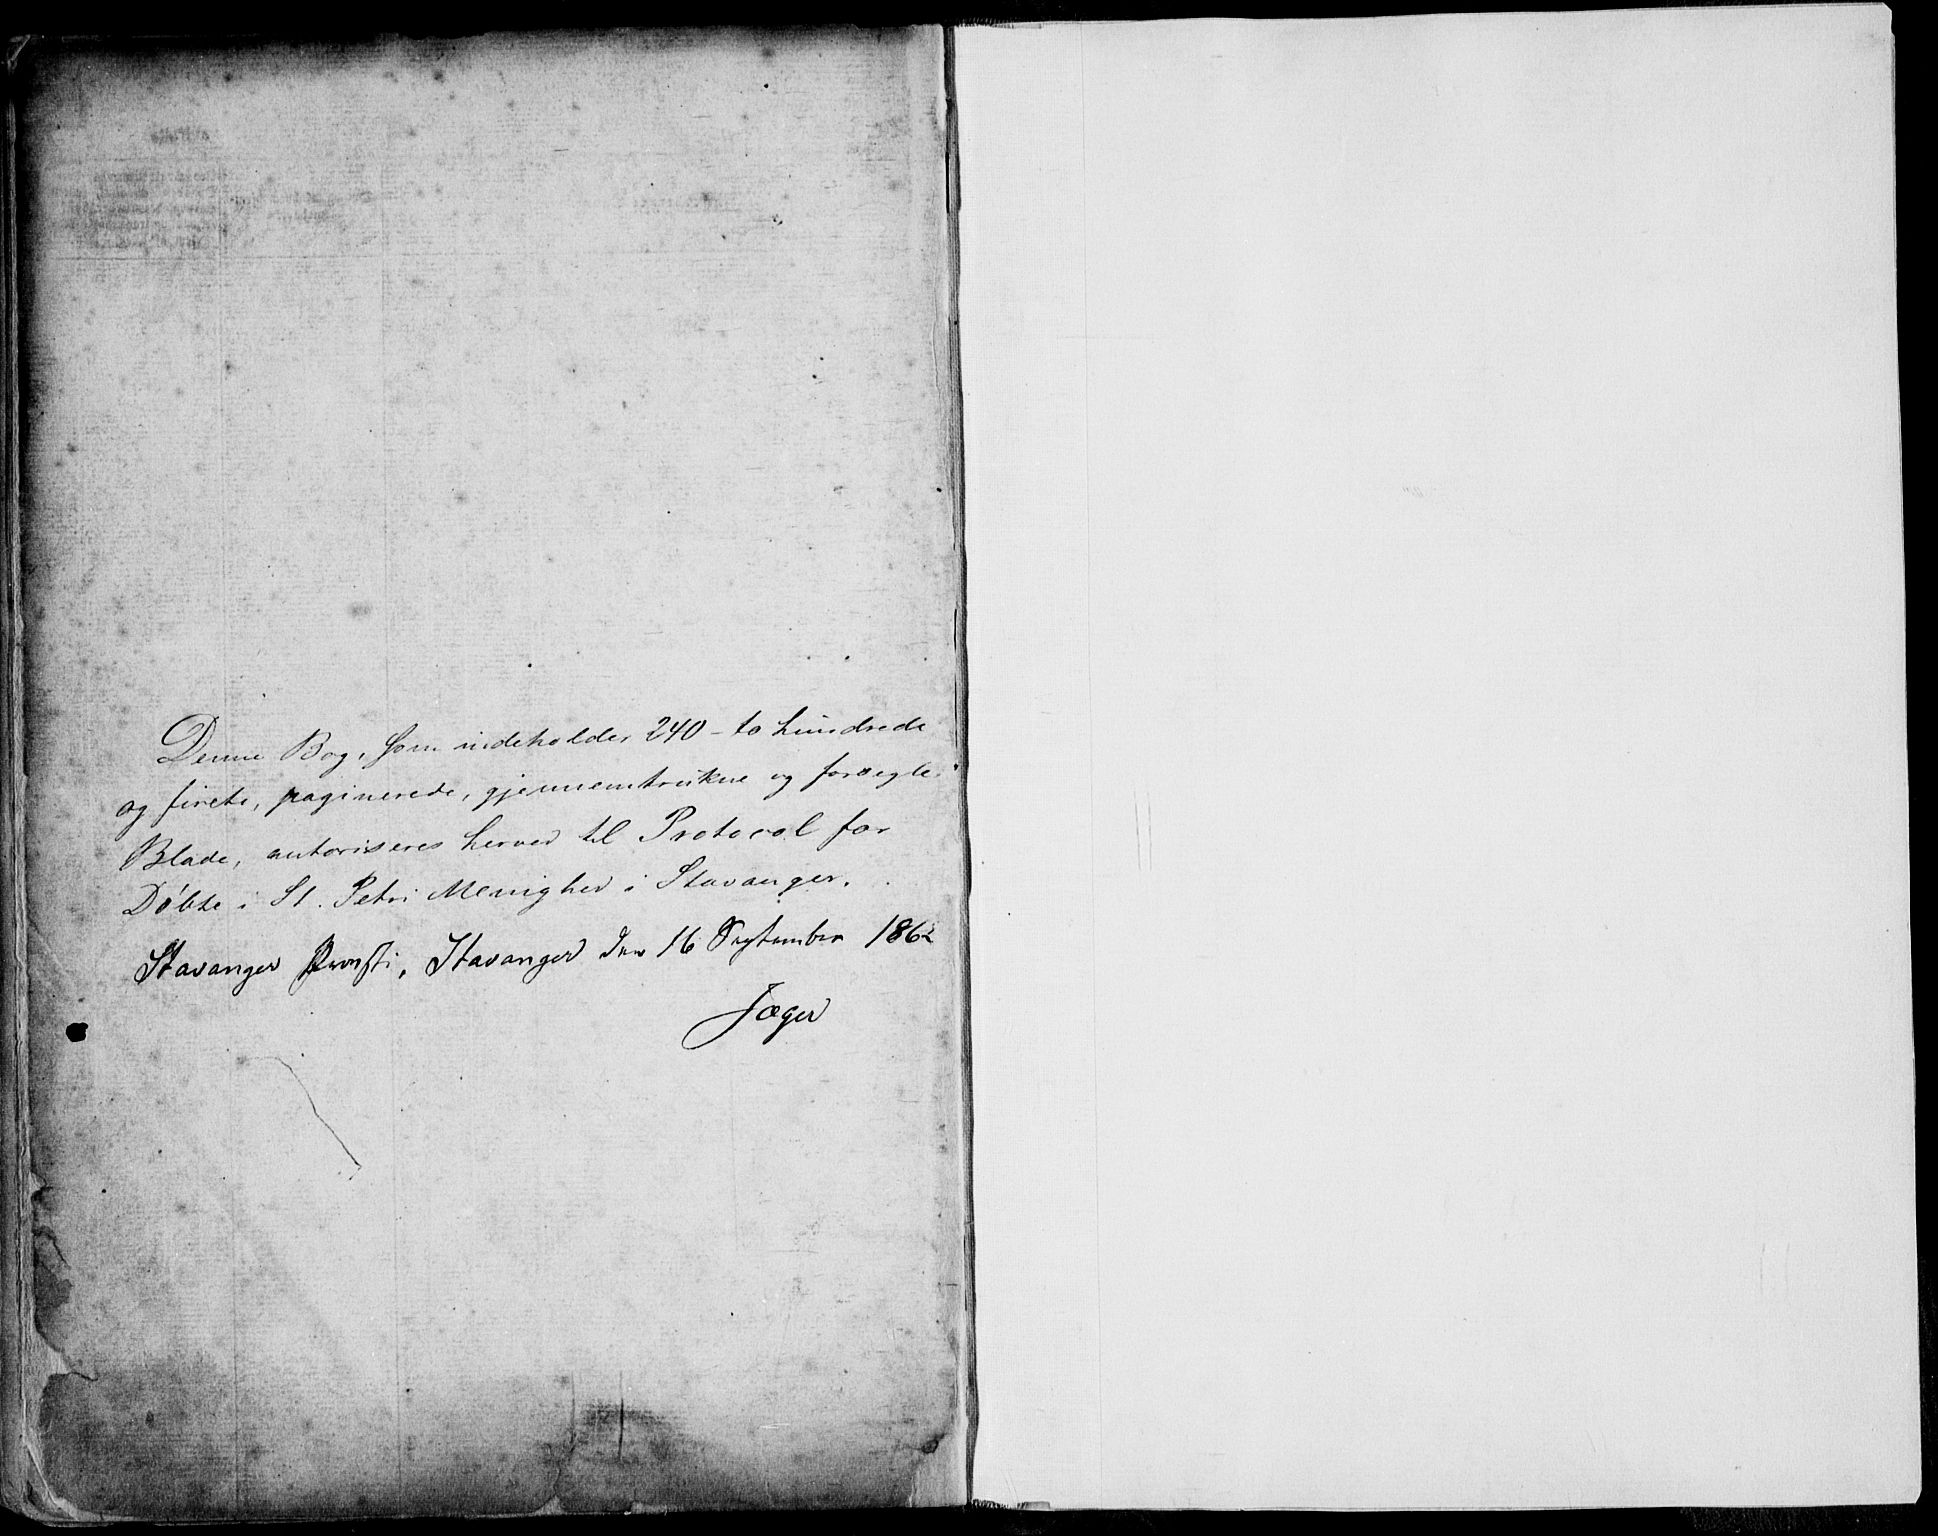 Denne Bog, som indeholder 240 - to hundrede
og fireti, paginerede, gjennemtrukne og forsegle
Blade, autoriseres herved til Protocol for
Døbte i St. Petri Menighed i Stavanger.
Stavanger Provsti, Stavanger den 16 September 1862
Jæger